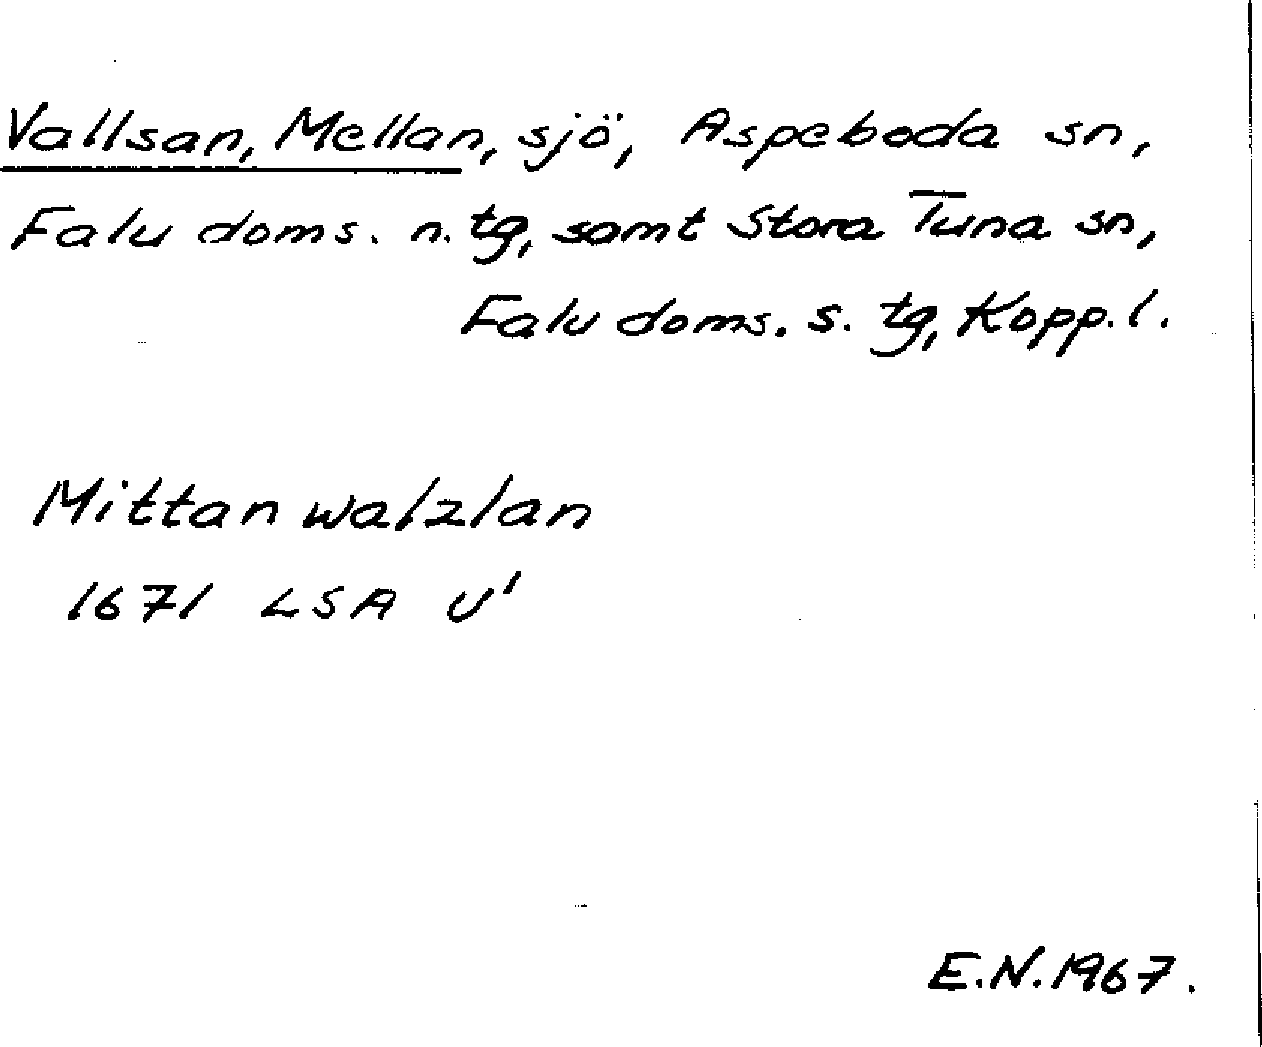 Vallsan, Mellan, sjö, Aspeboda sn,
Falu doms. n. tg, samt Stora Tuna sn,
Falu doms. s. tg, Kopp. l.
Mittan walzlan
1671 LSA U'
E.N. 1967.